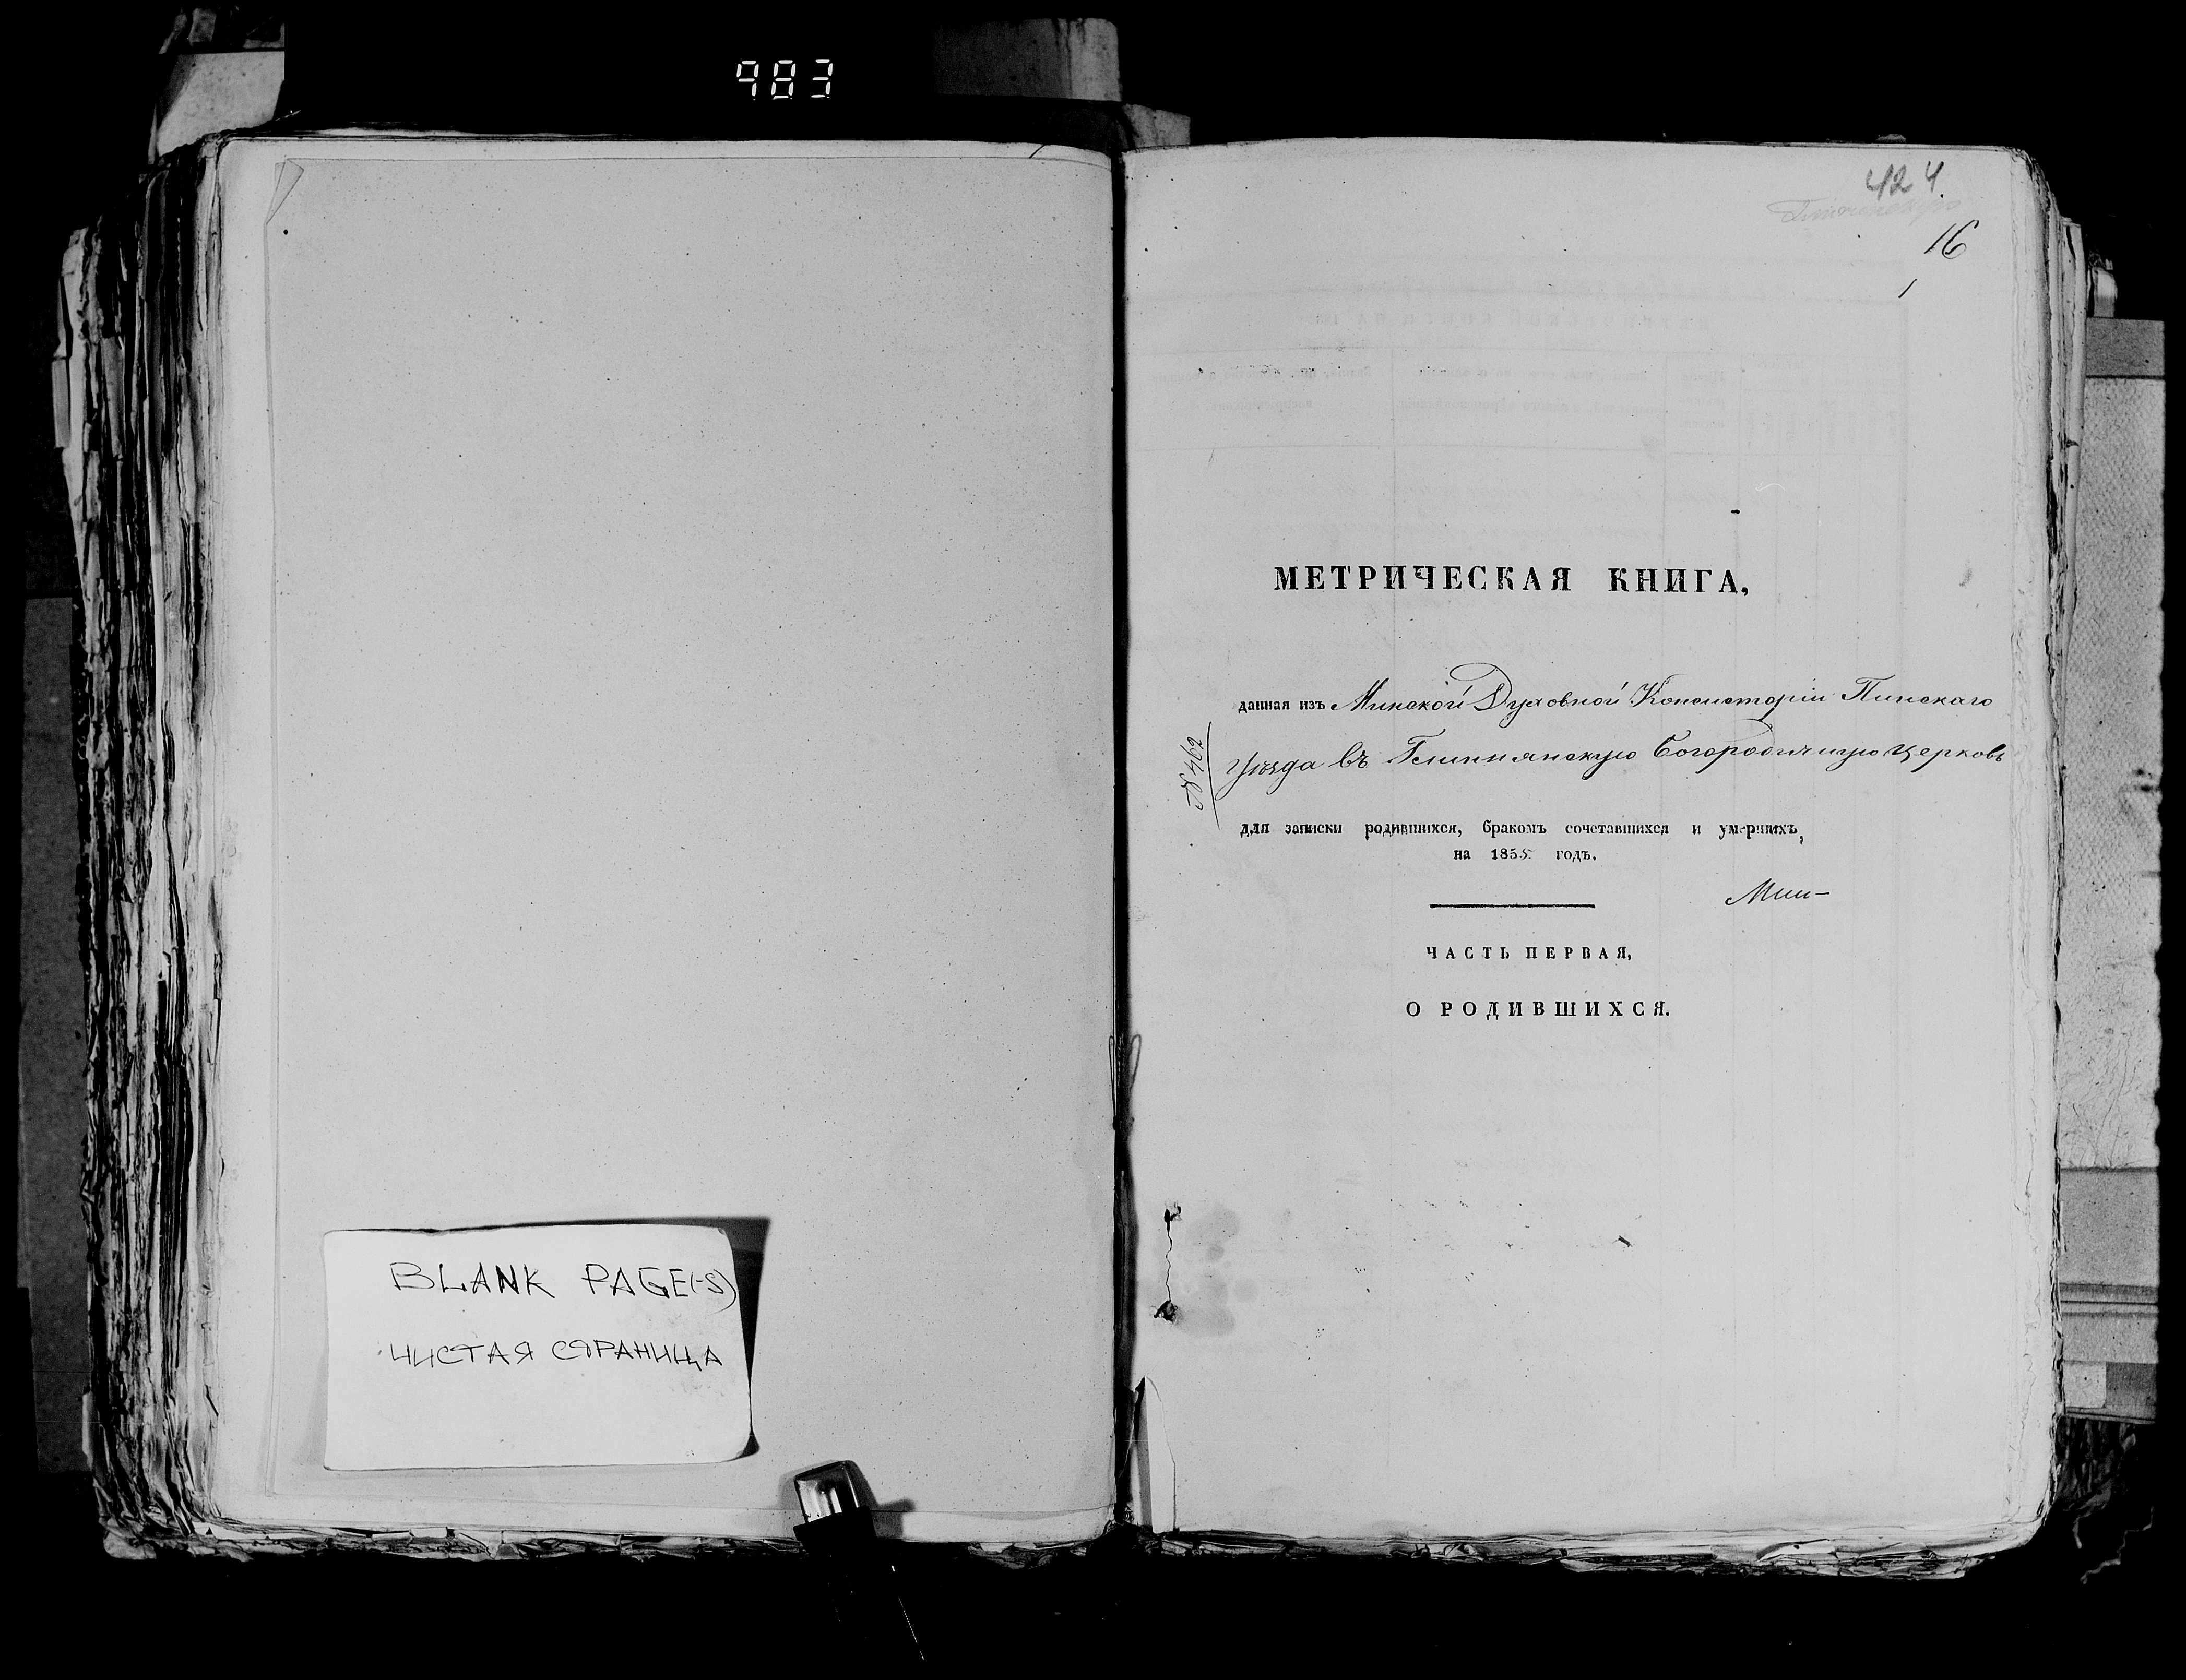 983
BLANK PAGE(-S)
ЧИСТАЯ СТРАНИЦА
424
16
1
МЕТРИЧЕСКАЯ КНИГА,
данная изъ Минской Духовной Консисторіи Пинскаго
уѣзда въ Богородичную церковь
№ 462
для записки родившихся, бракомъ сочетавшихся и умершихъ,
на 1855 годъ.
ЧАСТЬ ПЕРВАЯ,
О РОДИВШИХСЯ.